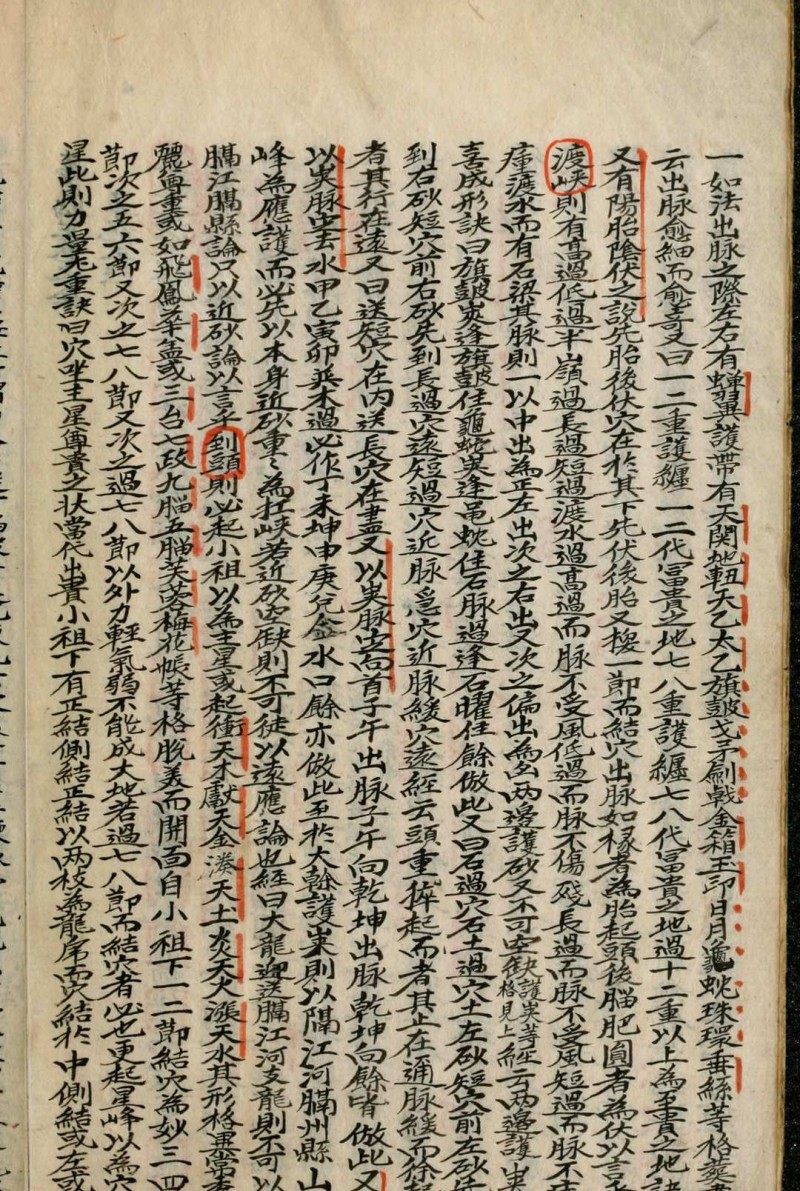 一如法出脉之際左右有蟬翼護帶有天関地軸天乙太乙旗皷戈矛劍戟金箱玉印日月龜蛇珠環垂絲等格
云出脉愈細而愈竒又曰一二重護纏一二代冨貴之地七八重護纏七八代冨貴之地過十二重以上為至貴之地
又有陽胎陰伏之說先胎後伏穴在於其下先伏後胎又橫一節而結穴出脉如椽者為胎起頭後腦肥圓者為伏以言乎
渡峽則有高過低過半嶺過長過短過渡水過高過而脉不受風低過而脉不傷殘長過而脉不受風短過而脉不
渡水而有石梁其脉則一以中出為正左出次之右出又次之偏出為 两邊護砂又不可空缺護 等格見上經云两邊護
喜成形訣曰旗皷 逢旗皷住龜蛇 逢黽蛇住石脉過逢石曜住餘倣此又曰石過穴石土過穴土左砂短穴前左砂先
到右砂短穴前右砂先到長過穴遠短過穴近脉 穴近脉緩穴遠經云頭重 起而者其止在 脉緩而徐
者其行在遠又曰送短穴在内送長穴在盡又以 脉定向首子午出脉子午向乾坤出脉乾坤向餘皆倣此又
以 脉定去水甲乙寅卯 木過必作丁未坤申庚兌金水口餘亦倣此至於大幹護 則以隔江河隔州縣山
峰為應護而必先以本身近砂重〻為扛峽若近砂空缺則不可徒以遠應論也經曰大龍迎送隔江河支龍則不可以
隔江隔縣論只以近砂論以言乎到頭則必起小祖以為主星或起衝天木獻天金湊天土炎天火漲天水其形格 常
麗尊重或如飛鳳華盖或三台七政九腦五腦芙蓉梅花帳等格脫 而開面自小祖下一二節結穴為妙三四
節次之五六節又次之七八節又次之過七八節以外力輕氣弱不能成大地若過七八節而結穴者必也更起星峰以為穴
星此則力量尤重訣曰穴坐主星尊貴之状當代出貴小祖下有正結側結正結以两枝為龍席而穴結於中側結或左或